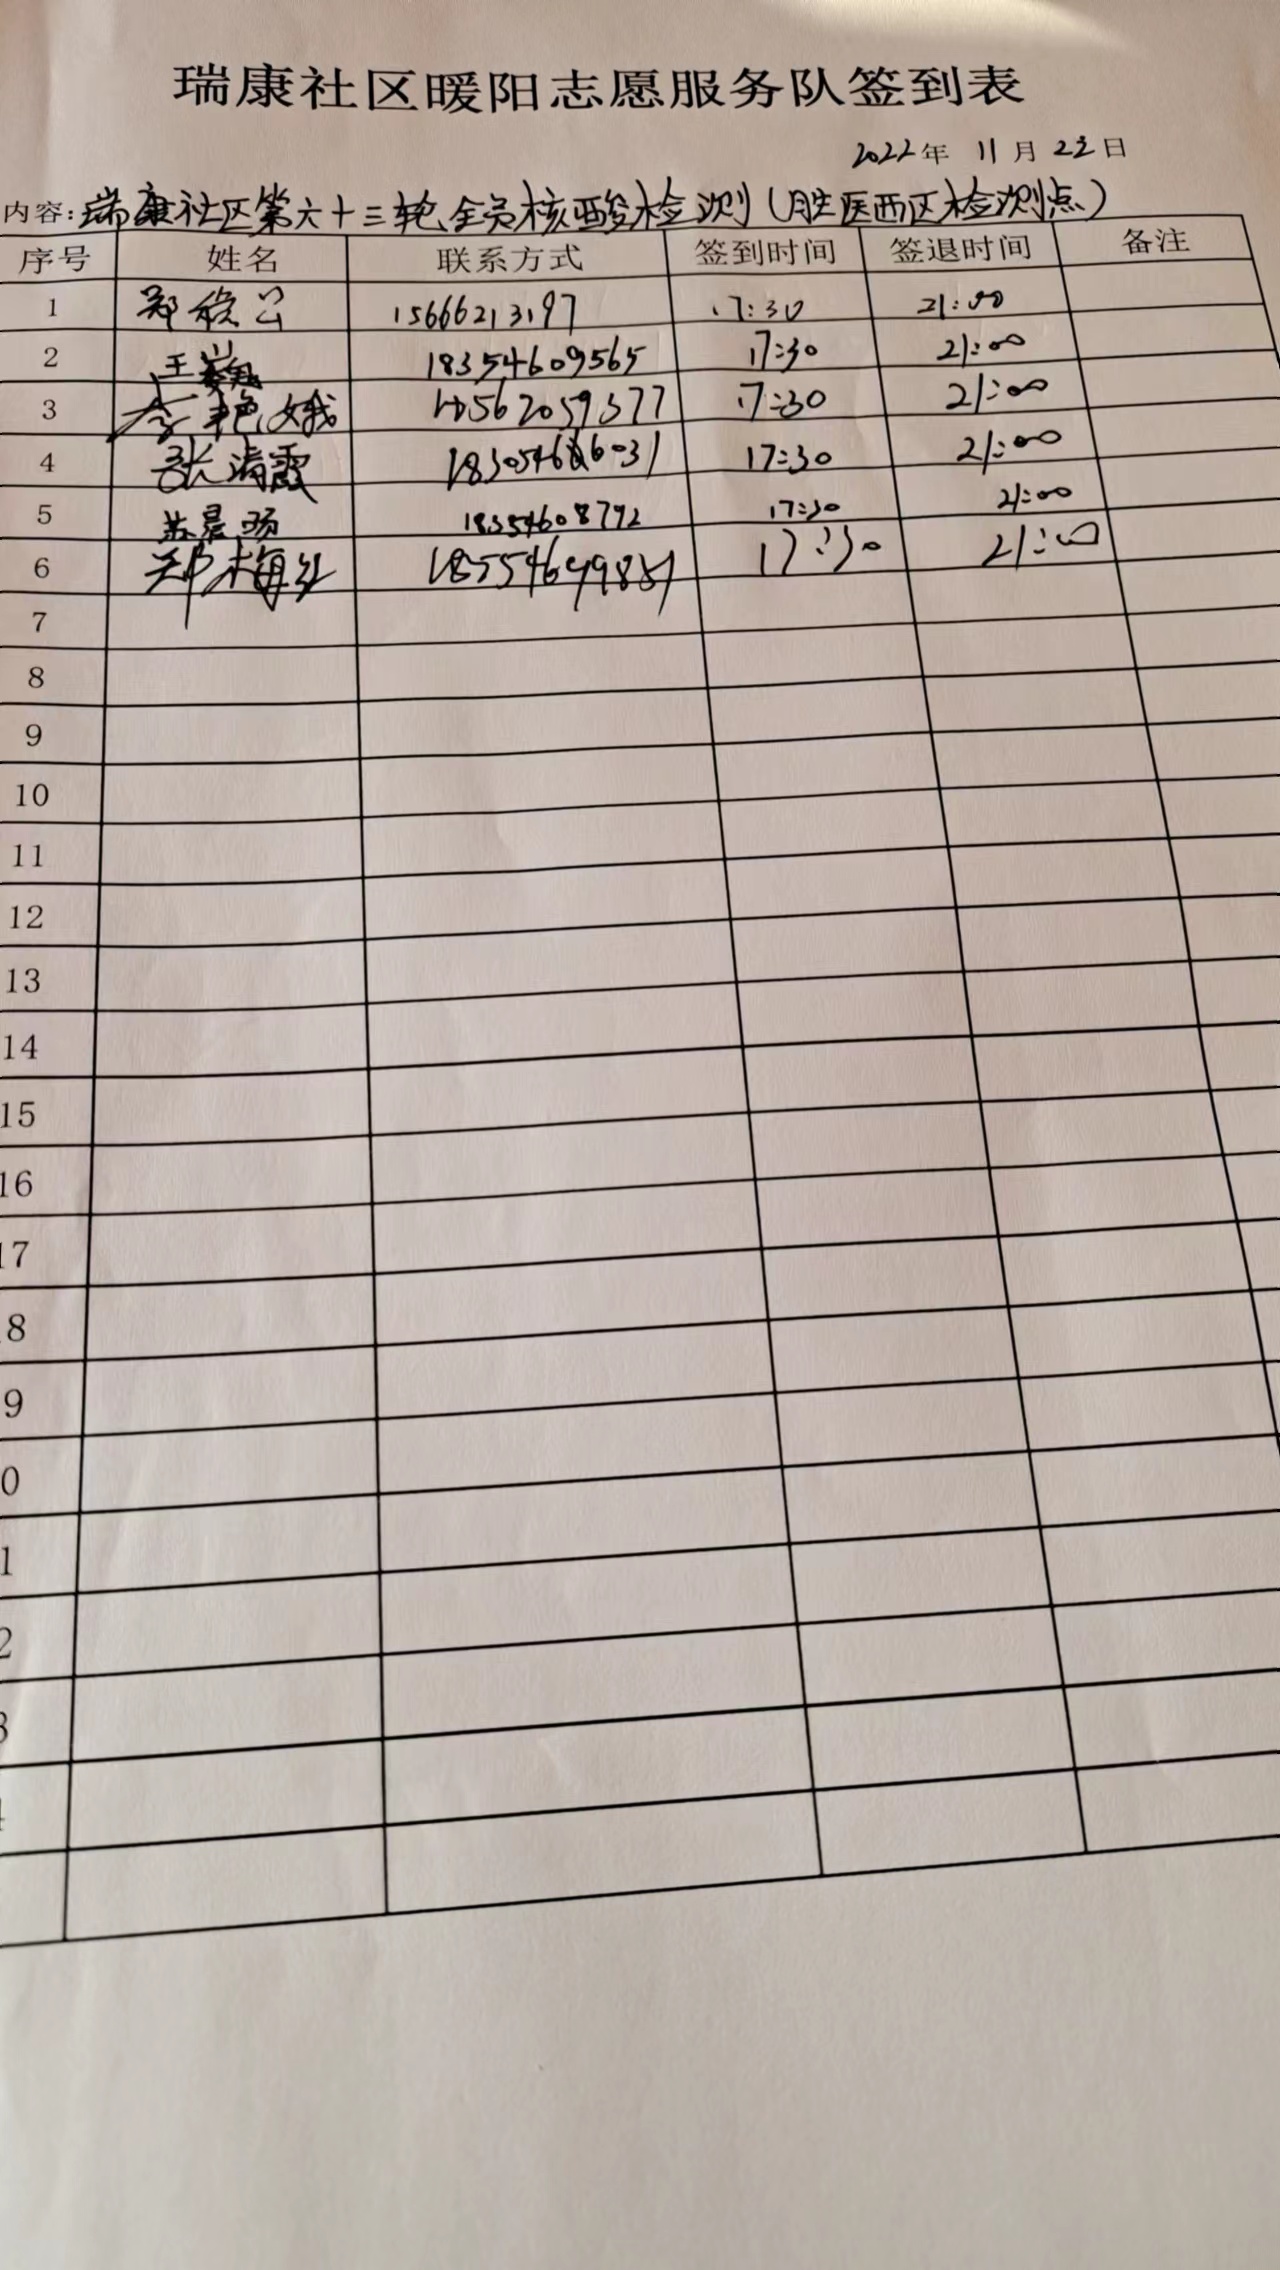 瑞康社区暖阳志愿服务队签到表
2022年 11月 22日
内容:瑞康社区第六十三轮全员核酸检测(胜医西区检测点)
序号 姓名 联系方式 签到时间 签退时间 备注
1 郑 15666213197 17:30 21:00
2 王巍 18354609565 17:30 21:00
3 李艳娥 17:30 21:00
4 张清霞 17:30 21:00
5 苏晨 18354608792 17:30 21:00
6 郑梅 17:30 21:00
7
8
9
10
11
12
13
14
15
16
17
8
9
0
1
2
3